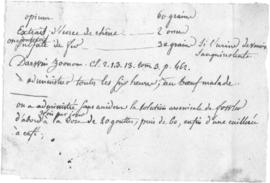 opium 60 grains
Extrait d'écorce de chêne 2 once
ou
sulfate de fer 30 grains si l'urine demeure
sanguinolente
Darwin Zoonom. Cl. 2.1.3.13. tom 3. p. 462.
administrer toutes les six heures, au bœuf malade
on a administré sans accident la solution arsenicale de
d'abord à la dose de 20 gouttes, puis de 60, enfin d'une cuillère
à café.